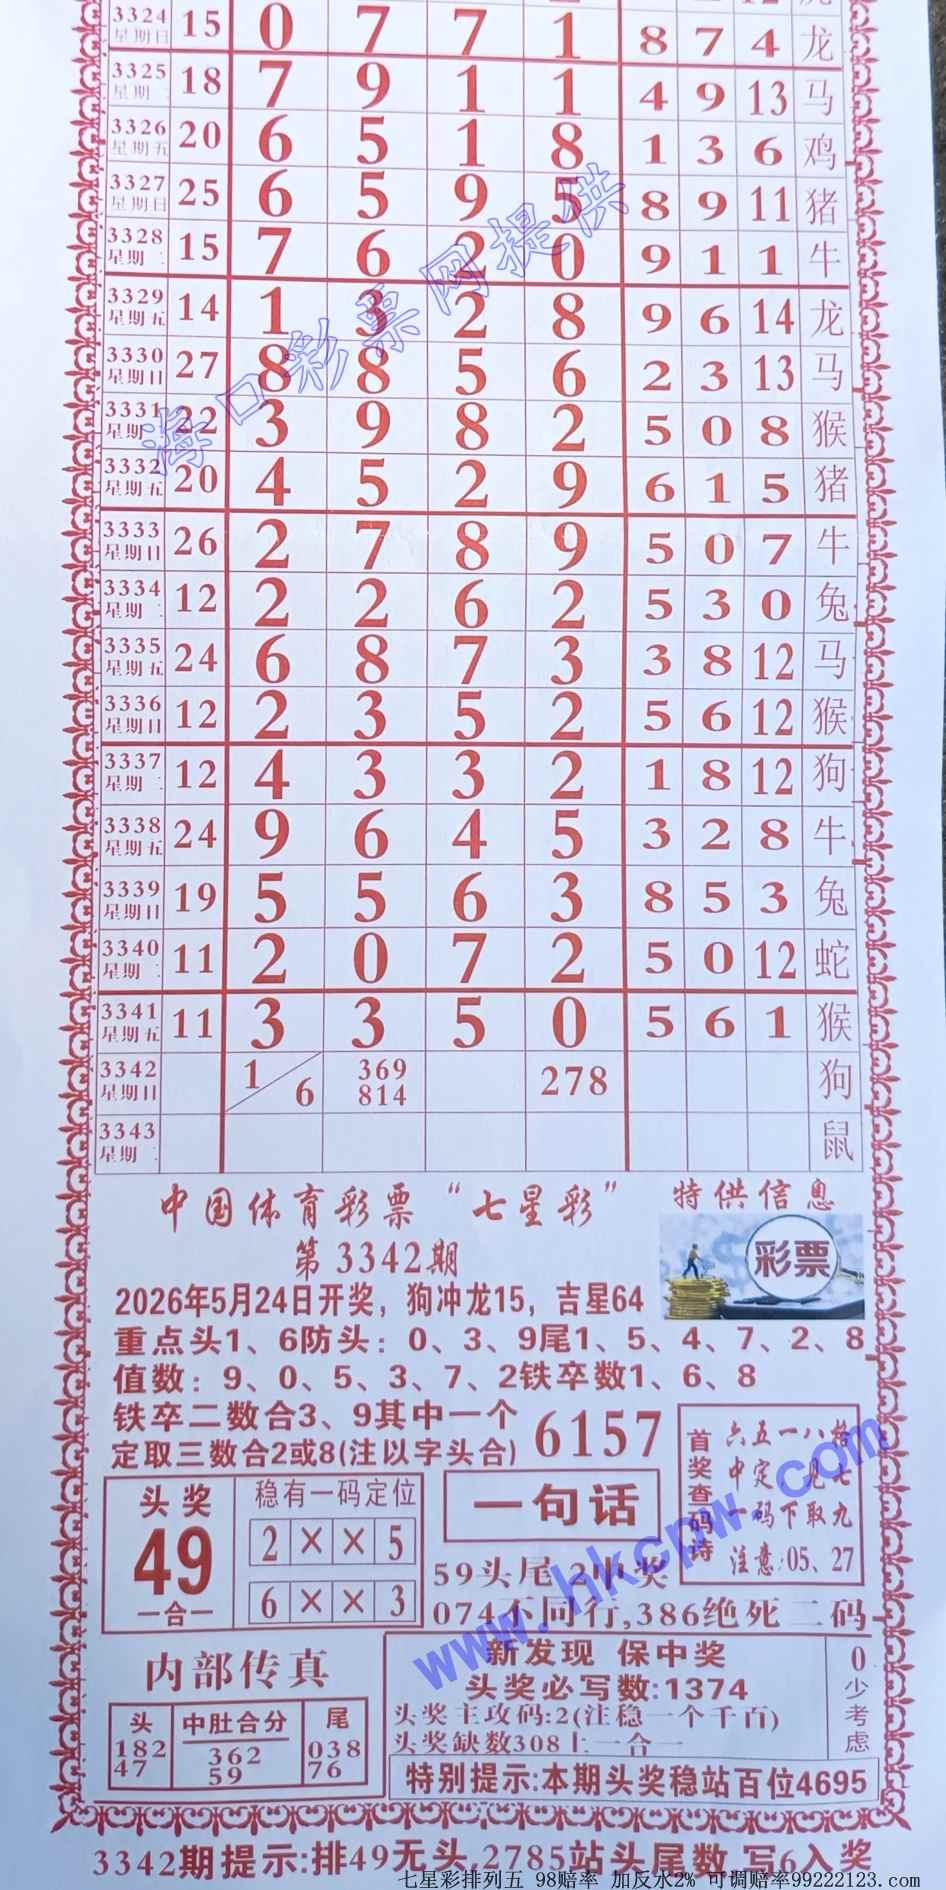 3324 15 0 7 7 1 8 7 4 龙
星期日
3325 18 7 9 1 1 4 9 13 马
星期二
3326 20 6 5 1 8 1 3 6 鸡
星期五
3327 25 6 5 9 5 8 9 11 猪
星期日
3328 15 7 6 2 0 9 1 1 牛
星期二
3329 14 1 3 2 8 9 6 14 龙
星期五
3330 27 8 8 5 6 2 3 13 马
星期日
3331 22 3 9 8 2 5 0 8 猴
星期
3332 20 4 5 2 9 6 1 5 猪
星期五
3333 26 2 7 8 9 5 0 7 牛
星期日
3334 12 2 2 6 2 5 3 0 兔
星期二
3335 24 6 8 7 3 3 8 12 马
星期五
3336 12 2 3 5 2 5 6 12 猴
星期日
3337 12 4 3 3 2 1 8 12 狗
星期二
3338 24 9 6 4 5 3 2 8 牛
星期五
3339 19 5 5 6 3 8 5 3 兔
星期日
3340 11 2 0 7 2 5 0 12 蛇
星期二
3341 11 3 3 5 0 5 6 1 猴
星期五
3342 1/6 369 278 狗
星期日 814
3343 鼠
星期二
海口彩票网提供
中国体育彩票“七星彩” 特供信息
第3342期
彩票
2026年5月24日开奖，狗冲龙15，吉星64
重点头1、6防头：0、3、9尾1、5、4、7、2、8
值数：9、0、5、3、7、2铁卒数1、6、8
铁卒二数合3、9其中一个
定取三数合2或8(注以字头合)
6157
首奖查码诗
六五一八
中定 见七
一码下取九
注意:05、27
头奖
49
一合一
稳有一码定位
2 × × 5
6 × × 3
一句话
59头尾 2中奖
074不同行,386绝死二码
www.hkcpw.com
内部传真
头 中肚合分 尾
182 362 038
47 59 76
新发现 保中奖
头奖必写数:1374
头奖主攻码:2(注稳一个千百)
头奖缺数308上一合一
0少考虑
特别提示:本期头奖稳站百位4695
3342期提示:排49无头,2785站头尾数,写6入奖
七星彩排列五 98赔率 加反水2% 可调赔率99222123.com